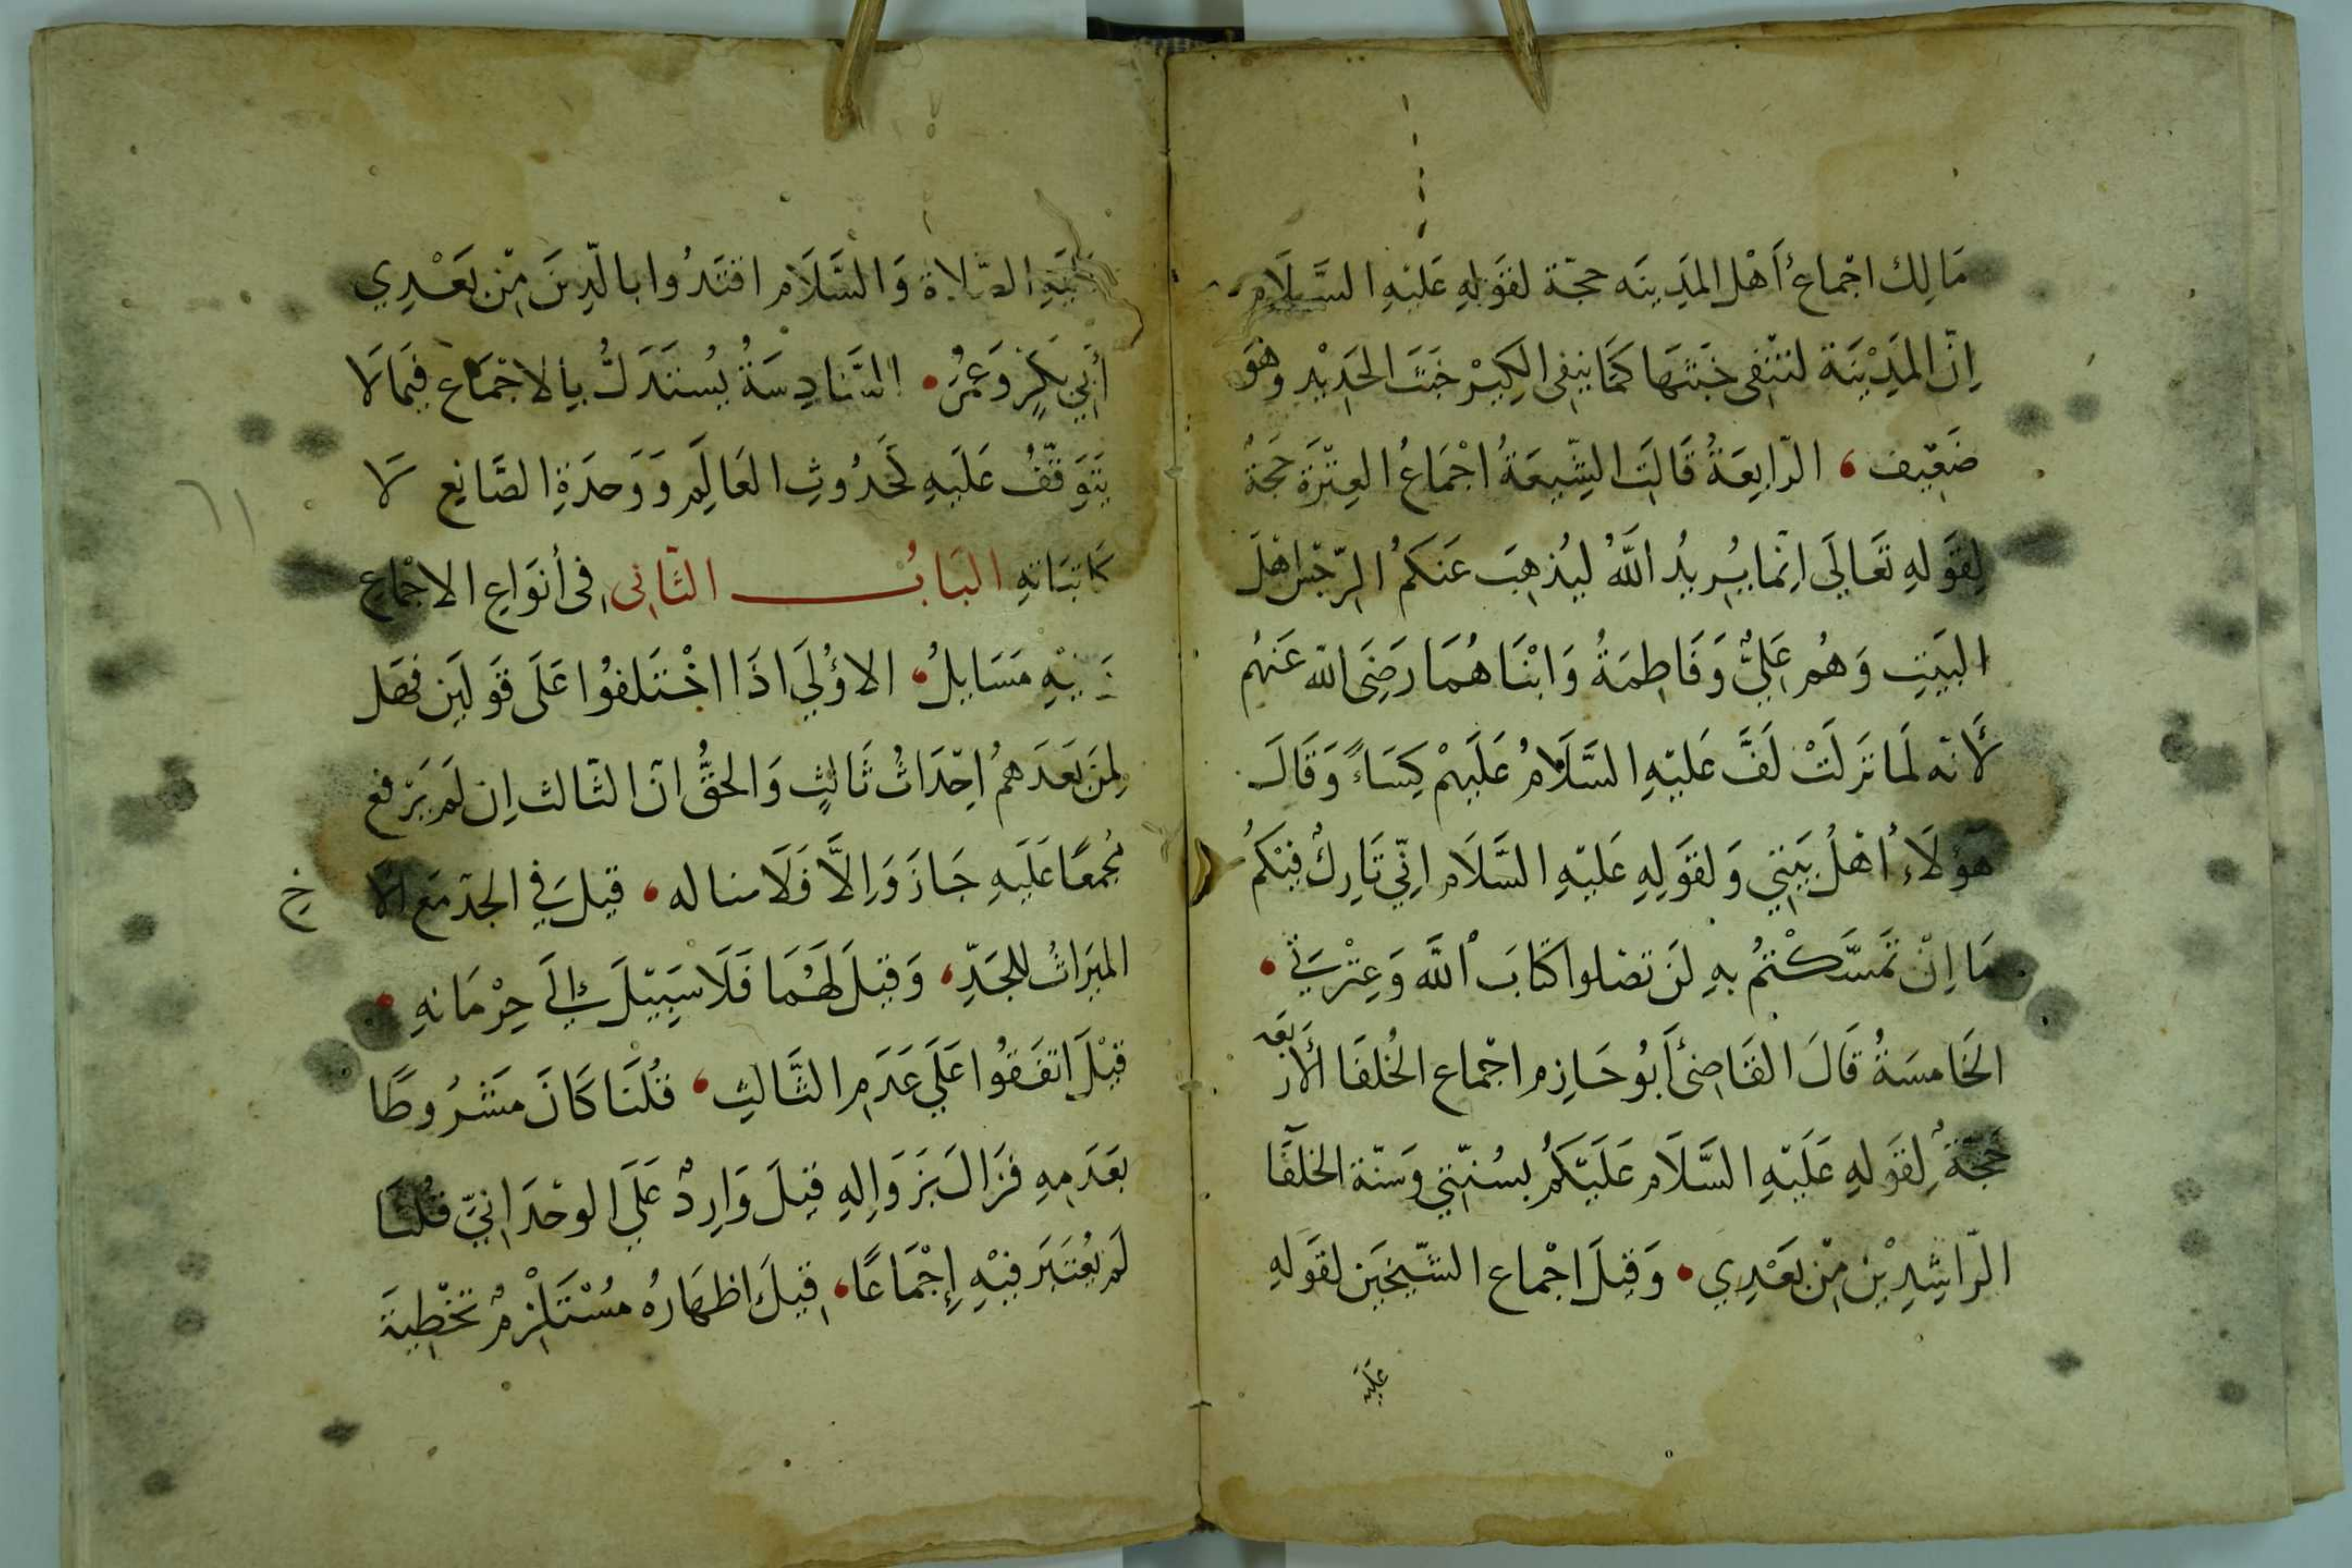 مَالِك اجْماعُ أَهْل المَدِينَه حجّة لقَولِهِ عَليْهِ السَّلَام
اِنّ المَدِيْنَة لتنْفى خَبَثَهَا كَمَا ينفِى الكِيرْ خَبَثَ الحَدِيْد وَهُوَ
ضَعِيف ، الرّابِعَةُ قَالَت الشِّيعَةُ اجْمَاعُ العِتْرَة حَجةٌ
لِقَولِهِ تَعَالَي اِنّمَا يُرِيدُ اللَّهُ ليُذهِبَ عَنكمُ الرّجْسَ اهْلَ
البَيتِ وَهُم عَلِيٌّ وَفَاطِمَةُ وَابْنَاهُمَا رَضِيَ اللّه عَنهُم
لأَنّه لَمَا نَزلَتْ لَفَّ عَليْهِ السَّلَامُ عَلَيهِمْ كِسَاءً وَقَالَ
هَؤلَاءِ أَهْلُ بَيْتِي وَلقَولِهِ عَليْهِ السَّلَام اِنّي تَارِكٌ فِيْكمُ
مَا اِنْ تَمسَّكْتمُ بهِ لَن تضلوا كتَابَ اللَّه وَعِتْرَتي •
الخَامسَةُ قَالَ القَاضِىُ أَبُو حَازِم اجْماع الخُلفَا الأَربَعه
حجَةٌ لِقَولِهِ عَلَيْهِ السَّلَام عَلَيْكمُ بسُنّتِي وَسنّة الخلَفَا
الرّاشِدِيْن مِن بَعْدِي • وَقيْلَ اجْماع الشّيخَين لقَولِهِ
عَلَيْهِ
عَليَهِ الصّلاة وَالسَّلَام اقتَدُوا بالّذِينَ مِن بَعْدِي
أَبي بَكرٍ وَعُمَرُ • السَّادِسَةُ يُستَدَلُّ بِالاجْمَاع فيَما لَا
يَتَوَقّفُ عَلَيهِ كَحُدُوثِ العَالَمِ وَوَحدَةِ الصَّانِعِ لَا
كَاثبَاتهِ البَابُ الثّانِى فِى أنوَاعِ الاجْمَاعِ
وَفِيْهِ مَسَايلُ • الاوُلَي اذَا اخْتَلفُوا عَلَى قَولَين فهَل
لِمَن بَعَدَهمُ اِحْدَاثُ ثَالِثٍ وَالحَقُّ انّ الثّالث اِن لَم يَرْفع
مُجمعًا عَلَيهِ جَازَ وَاِلاَّ فَلَا مثاله ، قيلَ في الجدّ مَع الأَ
خِ
الميَراثُ للجَدِّ ، وَقيْلَ لهُمَا فَلَا سَبِيْلَ إِلَي حِرْمَانهِ •
قيْلَ اتفَقُوا عَلَي عَدَمِ الثَّالثِ ، قُلنَا كَانَ مَشْرُوطًا
بعَدَمِهِ فزَالَ بزَوَالِهِ قيلَ وَارِدٌ عَلَي الوحْدَانيّ قُلنَا
لَم يُعْتَبَر فيْهِ إِجْمَاعًا ، قيلَ اظهَارُه مُسْتَلْزمٌ تخْطِيَةَ
٦١